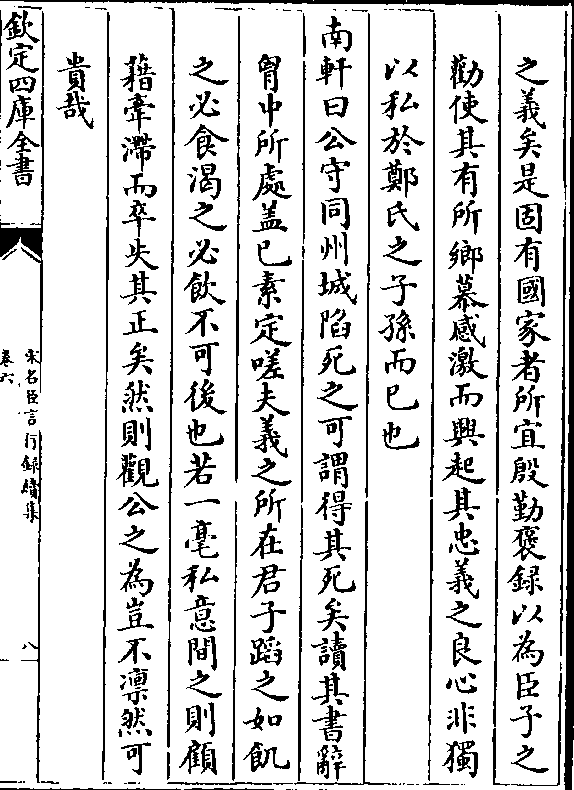 之義矣是固有國家者所宜殷勤褒録以為臣子之
勸使其有所鄉慕感激而興起其忠義之良心非獨
以私於鄭氏之子孫而已也
南軒曰公守同州城陷死之可謂得其死矣讀其書辭
胷中所處蓋已素定嗟夫義之所在君子蹈之如飢
之必食渴之必飲不可後也若一毫私意間之則顧
藉牽滯而卒失其正矣然則觀公之為豈不凛然可
貴哉
欽定四庫全書
宋名臣言行録續集
卷六
八